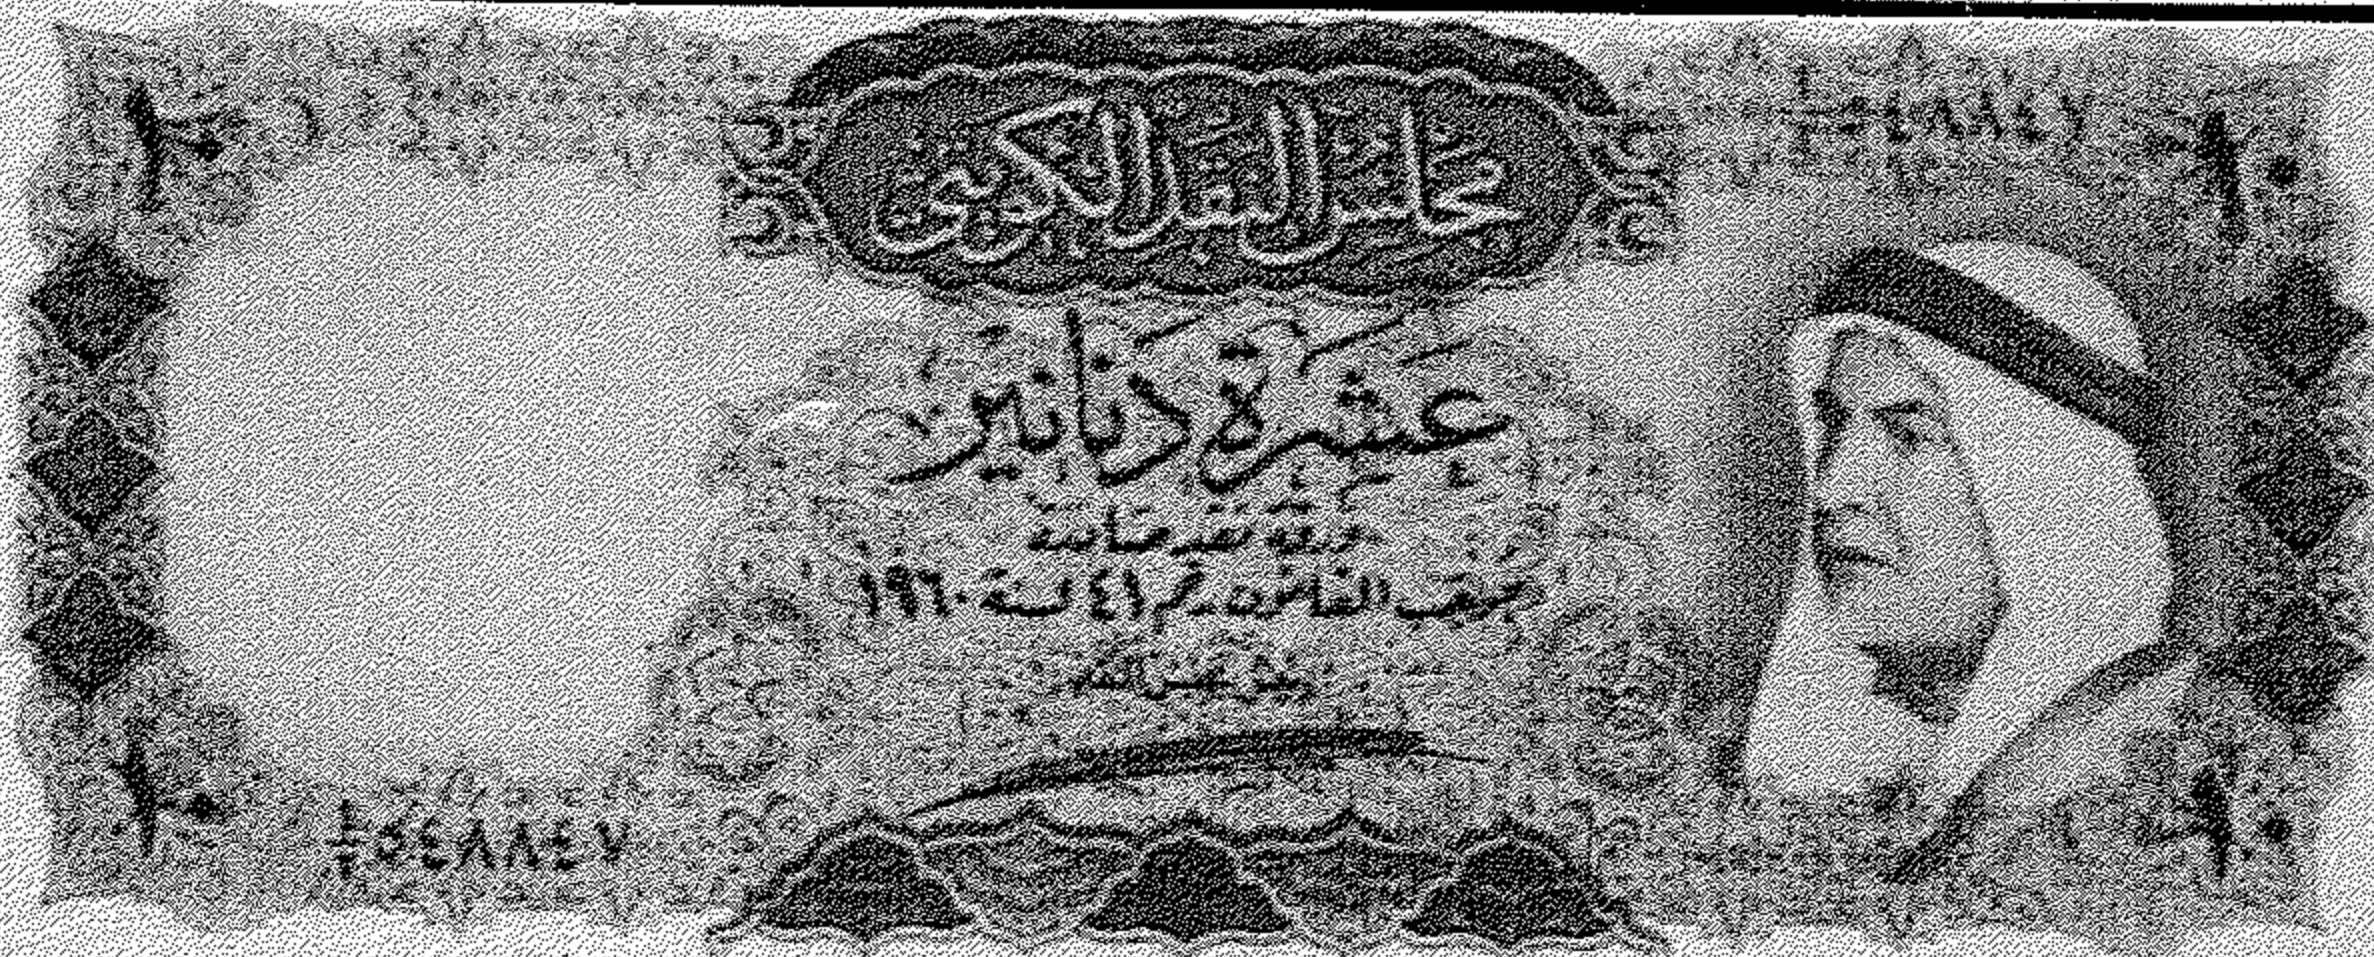 ١٠
١٠
مجلس النقد الكويتي
عشرة دنانير
ورقة نقد صادرة
بموجب القانون رقم ٤١ لسنة ١٩٦٠
رئيس مجلس النقد
١٠
٥٤٨٨٤٧
١٠